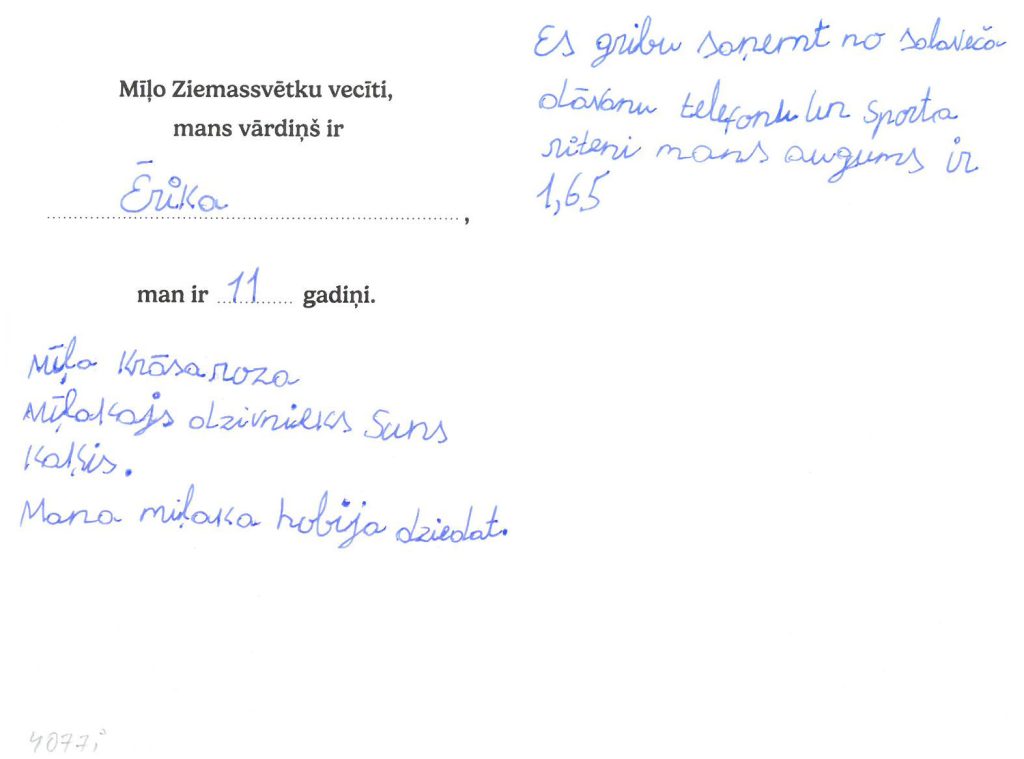 Mīļo Ziemassvētku vecīti,
mans vārdiņš ir
Ērika,
man ir 11 gadiņi.
Mīļa Krāsa roza
Mīļakajs dzivnieks Suns
Kaķis.
Mana miļaka hobija dziedat.
Es gribu saņemt no salaveča
dāvanu telefonu un Sporta
riteni mans augums ir
1,65